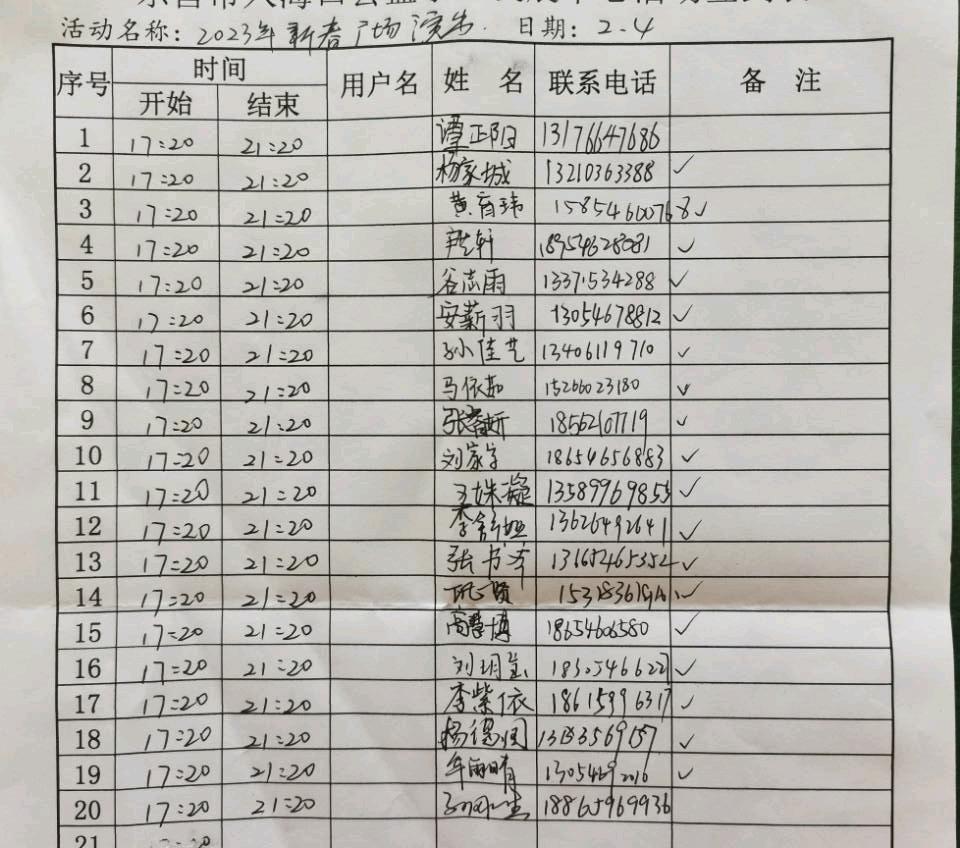 活动名称: 2023年新春广场演出. 日期: 2.4
序号 时间 用户名 姓 名 联系电话 备 注
开始 结束
1 17:20 21:20 谭正阳 13176647686
2 17:20 21:20 杨家城 13210363388 ✓
3 17:20 21:20 黄育玮 15854600768 ✓
4 17:20 21:20 轩 18954628081 ✓
5 17:20 21:20 谷志雨 13371534288 ✓
6 17:20 21:20 安薪羽 13054678812 ✓
7 17:20 21:20 孙佳艺 13406119710 ✓
8 17:20 21:20 马依茹 15266023180 ✓
9 17:20 21:20 张 18562107719 ✓
10 17:20 21:20 刘家宇 18654656883 ✓
11 17:20 21:20 王姝凝 13589969855 ✓
12 17:20 21:20 李舒娅 13626492641 ✓
13 17:20 21:20 张书 ✓
14 17:20 21:20 贤 ✓
15 17:20 21:20 高慧博 18654606580 ✓
16 17:20 21:20 刘玥 ✓
17 17:20 21:20 李紫依 18615996317 ✓
18 17:20 21:20 杨德润 ✓
19 17:20 21:20 牟雨晴 ✓
20 17:20 21:20 18865969936
21 17:20